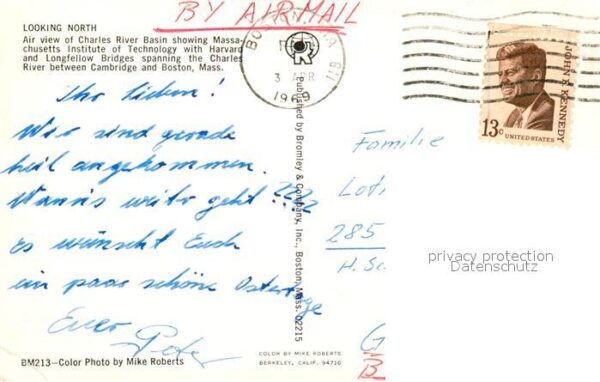 BY AIR MAIL
LOOKING NORTH
Air view of Charles River Basin showing Massa-
chusetts Institute of Technology with Harvard
and Longfellow Bridges spanning the Charles
River between Cambridge and Boston, Mass.
3 APR
1969
JOHN F. KENNEDY
13c UNITED STATES
Ihr Lieben!
Wir sind gerade
heil angekommen.
Wann's weiter geht ????
Es wünscht Euch
ein paar schöne Ostertage
Euer Peter
Published by Bromley & Company, Inc., Boston, Mass. 02215
Familie
Lot
285
H. Sc
G
B
privacy protection
Datenschutz
BM213—Color Photo by Mike Roberts
COLOR BY MIKE ROBERTS
BERKELEY, CALIF. 94710